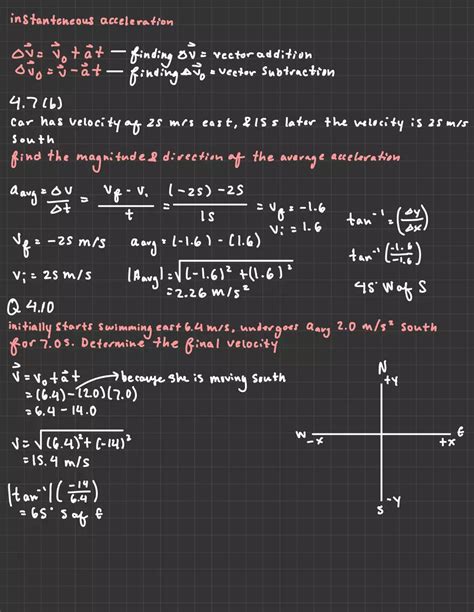 instanteneous acceleration
Δv⃗ = v⃗₀ + a⃗t — finding Δv⃗ = vector addition
Δv⃗₀ = v⃗ - a⃗t — finding Δv⃗₀ = vector subtraction
4.7 (b)
car has velocity of 25 m/s east, & 15 s later the velocity is 25 m/s
south
find the magnitude & direction of the average acceleration
a avg = Δv/Δt = (v f - v i)/t = ((-25) - 25)/15 = v f = -1.6
v i = 1.6
tan⁻¹ = (Δy/Δx)
v f = -25 m/s
a avg = (-1.6) - (1.6)
tan⁻¹ (-1.6/-1.6)
v i = 25 m/s
|a avg| = √((-1.6)² + (1.6)²)
= 2.26 m/s²
45° W of S
Q 4.10
initially starts swimming east 6.4 m/s, undergoes a avg 2.0 m/s² south
for 7.0s. Determine the final velocity
v⃗ = v₀ + a⃗t → because she is moving south
= (6.4) - (2.0)(7.0)
= 6.4 - 14.0
v = √((6.4)² + (-14)²
= 15.4 m/s
|tan⁻¹| (-14/6.4)
= 65° S of E
N
+y
W
-x
E
+x
-y
S